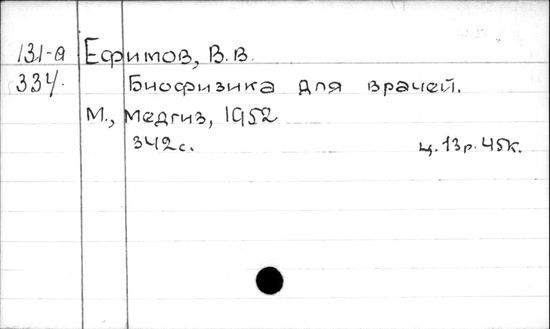 131-а Ефимов, В.В.
334. Биофизика для врачей.
М., Медгиз, 1952
342с. ц. 13р. 45к.